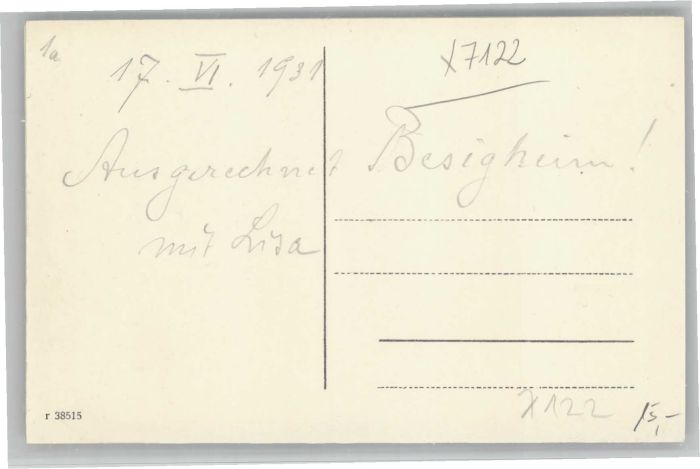 1a
17. VI. 1931
x7122
Ausgerechnet Besigheim!
mit Lisa
r 38515
x122
15,-